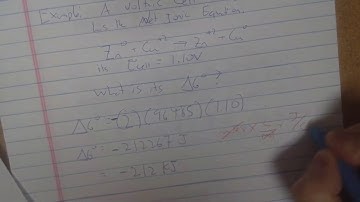 Example: A Voltic Cell
has the Net Ionic Equation.
Zn⁰ + Cu⁺² → Zn⁺² + Cu⁰
the Ecell = 1.10V
what is its ΔG°?
ΔG° = -(2)(96485)(1.10)
ΔG° = -212267 J
= -212 KJ